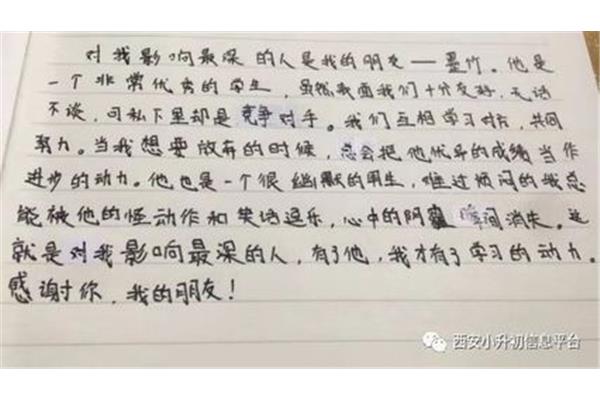 对我影响最深的人是我的朋友——墨竹。他是
一个非常优秀的学生，虽然表面我们十分友好，无话
不谈，可私下里却是竞争对手。我们互相学习对方，共同
努力。当我想要放弃的时候，总会把他优异的成绩当作
进步的动力。他也是一个很幽默的男生，难过烦闷的我总
能被他的怪动作和笑话逗乐，心中的阴霾瞬间消失。这
就是对我影响最深的人，有了他，我才有了学习的动力。
感谢你，我的朋友！
西安小升初信息平台